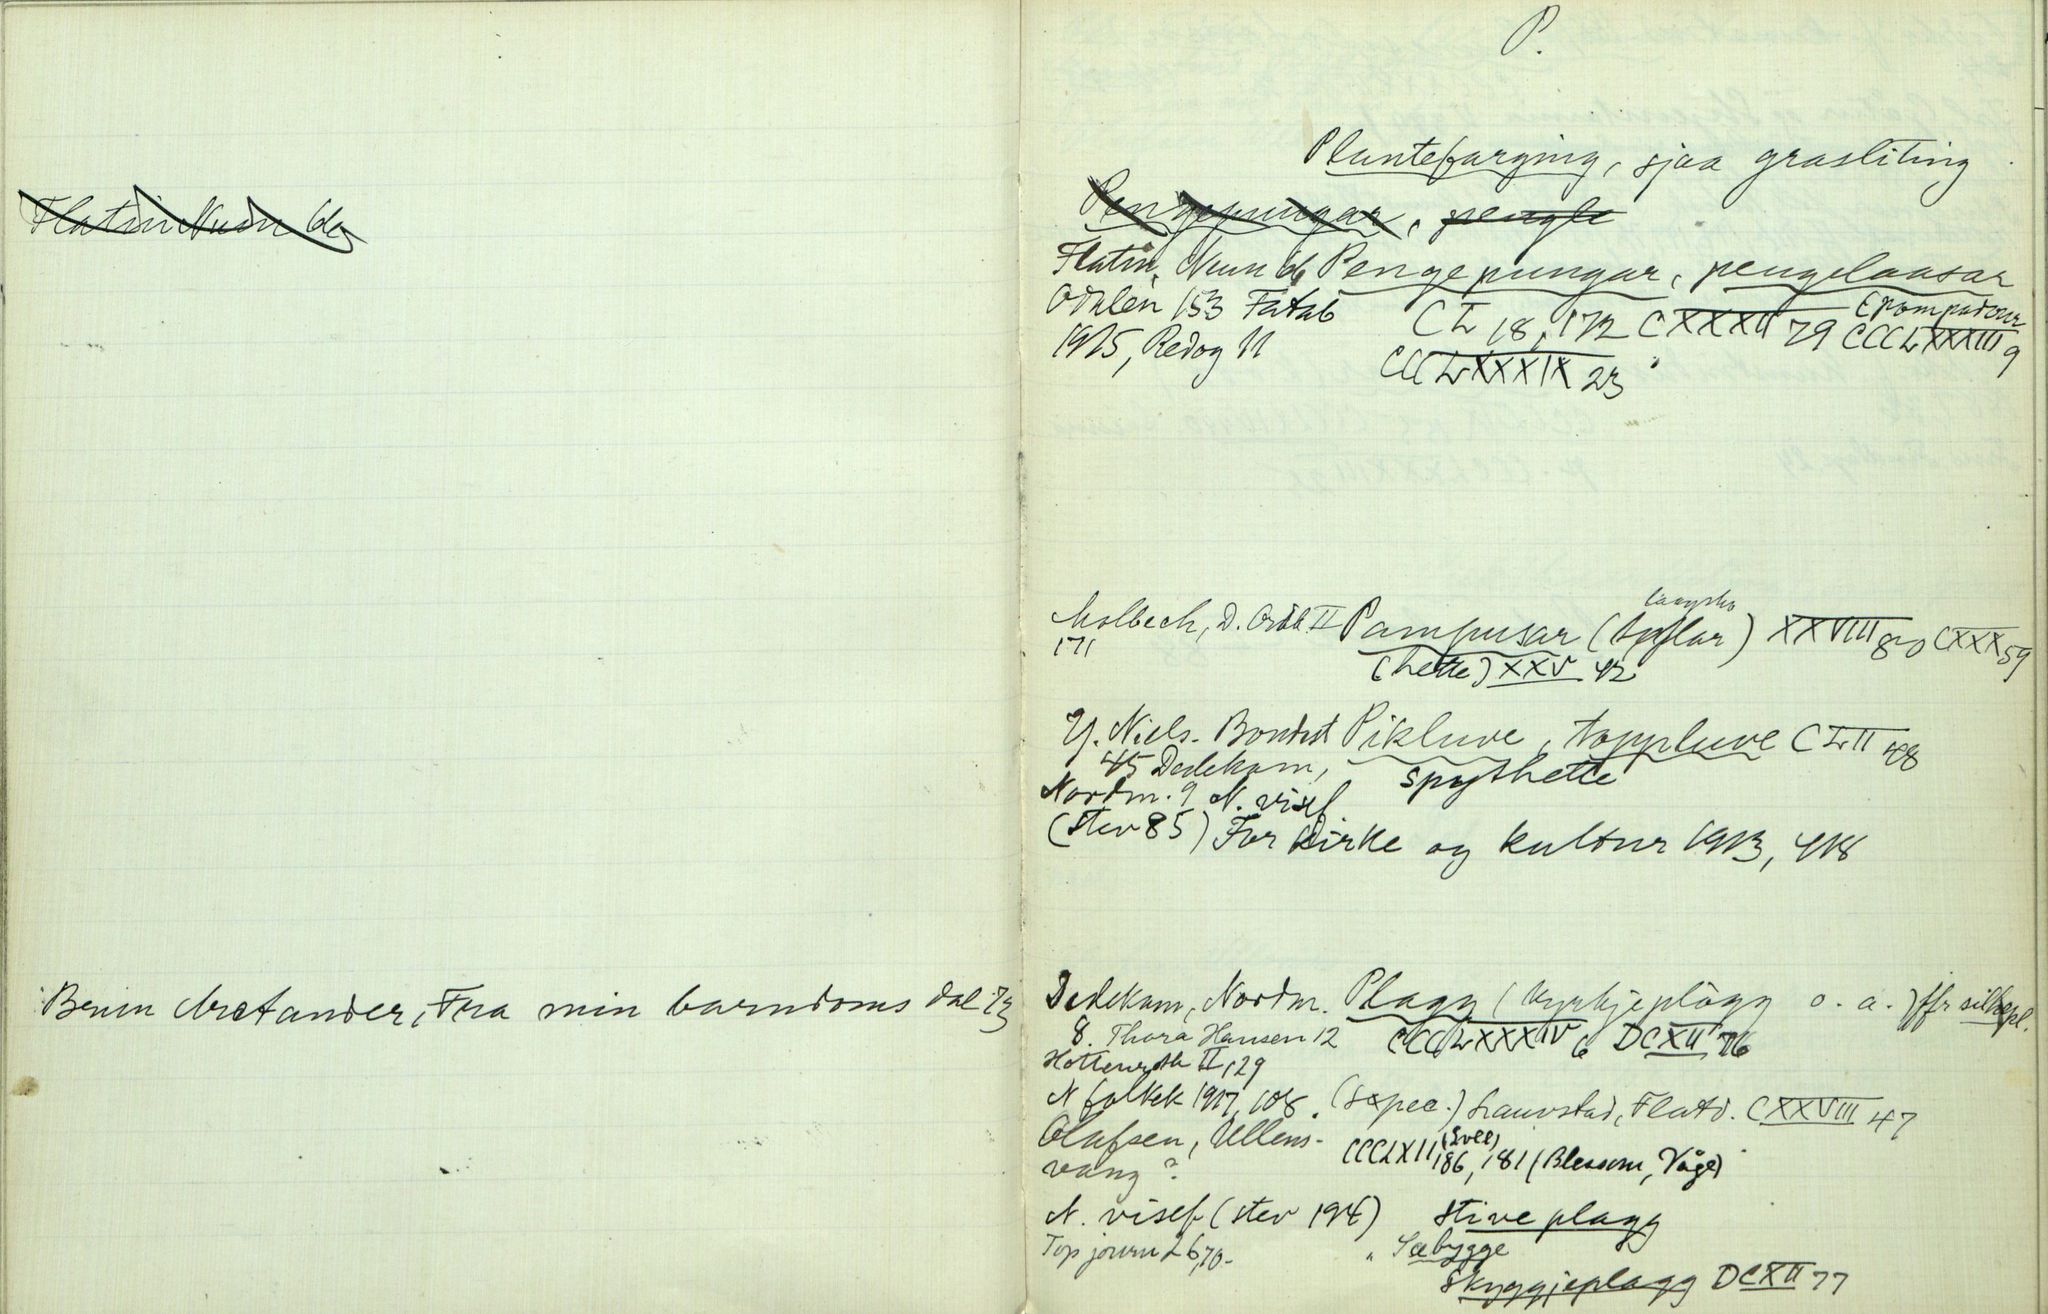 Flatin Numedg
Brun Aretander, Fra min barndoms dal 73
P.
Plantefarging, sjaa grasliting
Pengepungar, pengle
Flatin. Num 66 Pengepungar, pengelaasar
Odalen 153 Fatab CL 18, 172 CXXXII 79 (pompadour CCCLXXXIII 9
1915, Redog 11 CCCLXXXIX 23
Molbech, D. Ordb. II Pampusar (tøflar) XXVIII 80 CXXX 59
171 (hette) XXV 42
Y. Niels. Bondest Pikluve, toppluve CLII 48
45 Dedekam, spythette
Nordm. 9 N. visef
(stev 85) For kirke og kultur 1913, 418
Dedekam, Nordm. Plagg (kyrkjeplagg o. a.) jfr silkepl.
8. Thora Hansen 12 CCCLXXXIV 6 DCXII 76
Hottenroth II, 129
N folkek 1917, 108. (spec.) Lauvstad, Flatd. CXXVIII 47
Olafsen, Ullens- CCCLXII 186, 181 (Blessom, Våge)
vang?
N. visef (stev 194) Stive plagg
Top journ 26, 70- " Sæbygge
Skyggjeplagg DCXII 77